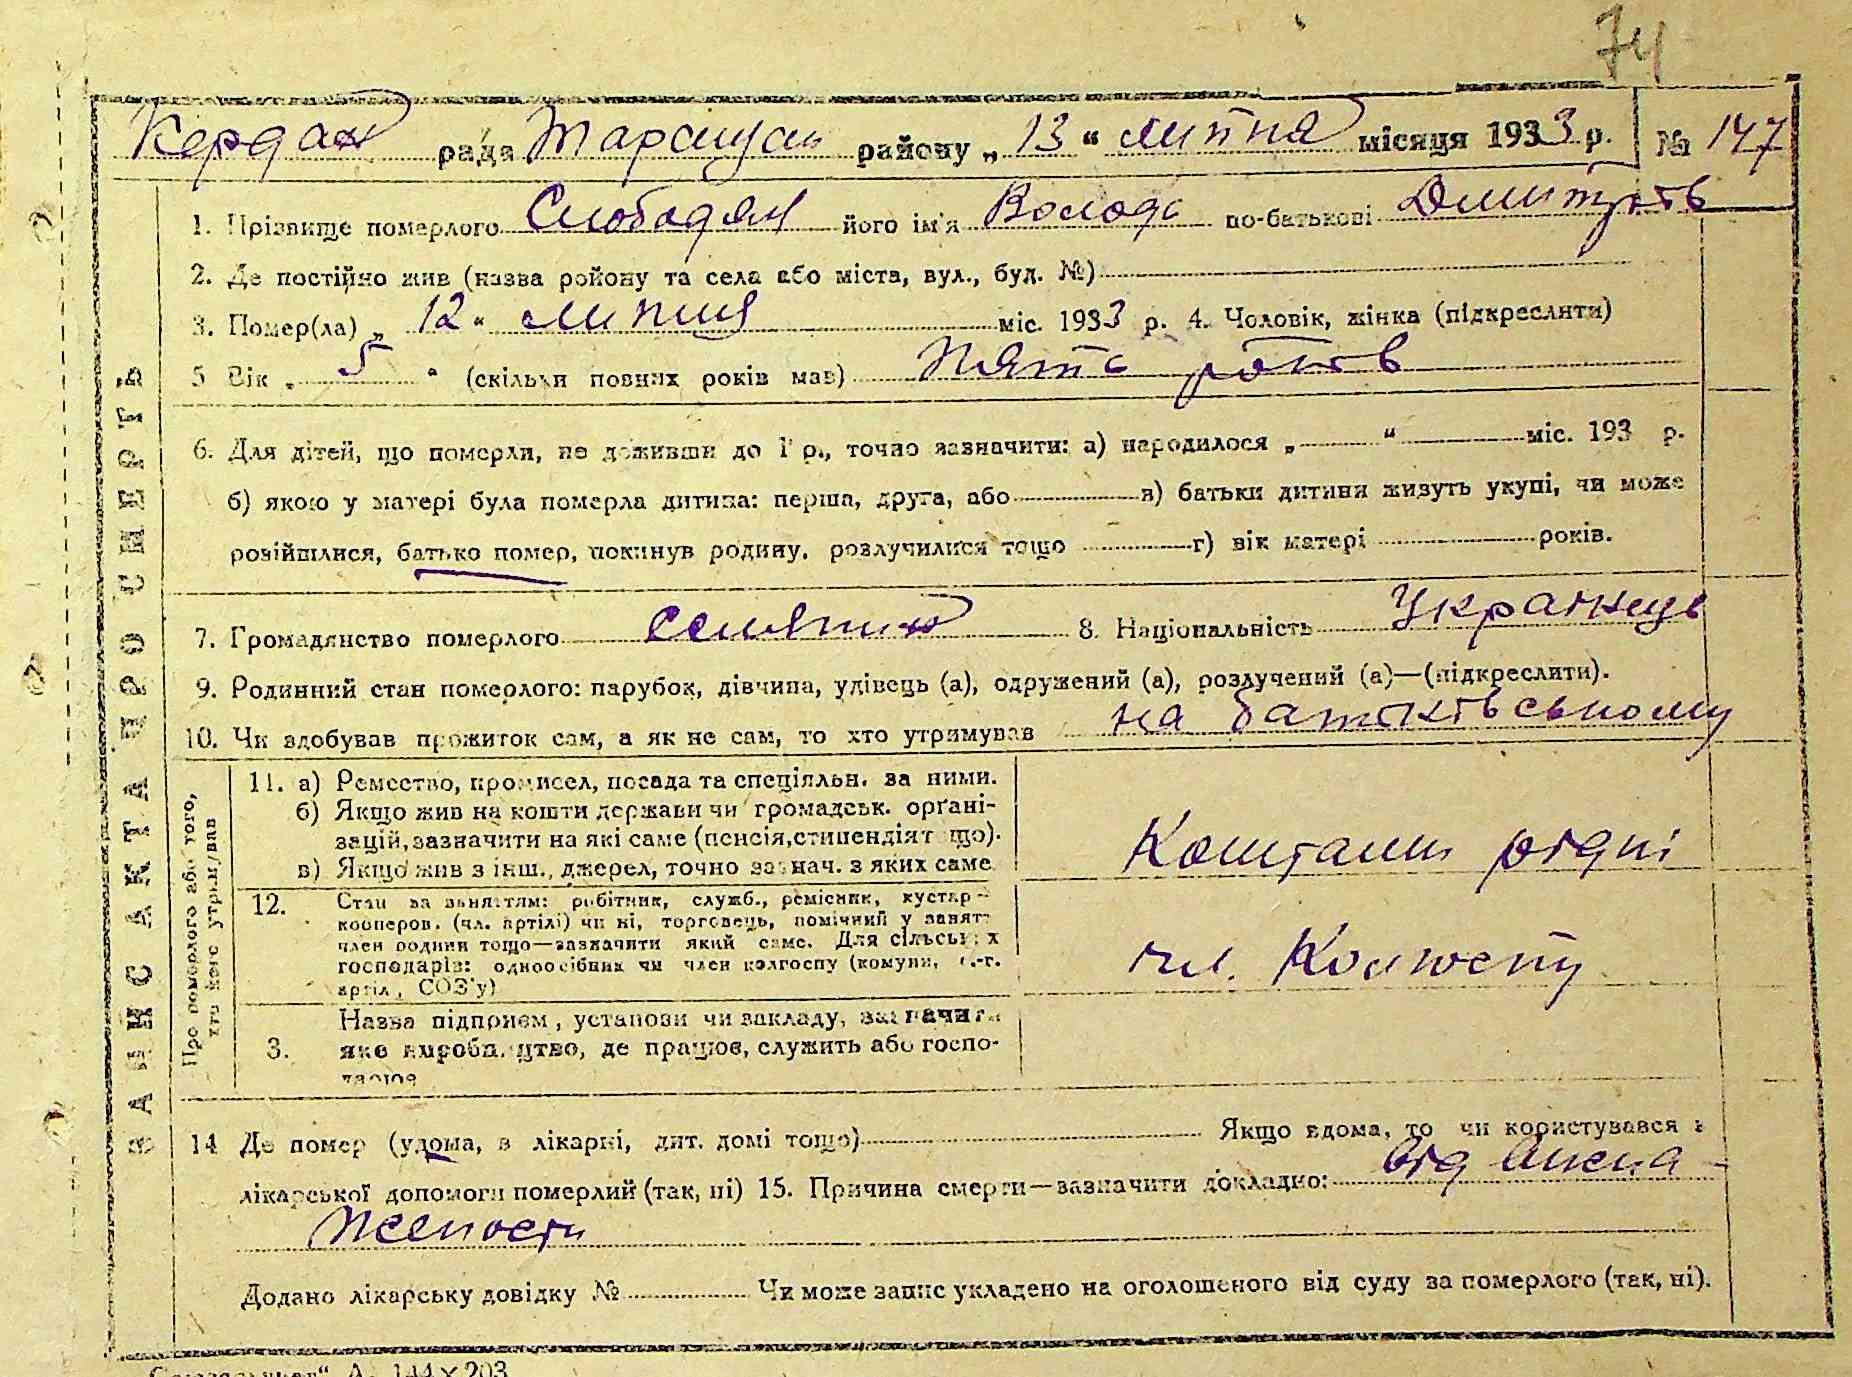 74
Кердан рада Таращан району „13“ липня місяця 1933 р. № 147
1. Прізвище померлого Слободян його ім'я Володь по-батькові Дмитрів
2. Де постійно жив (назва району та села або міста, вул., буд. №)
3. Помер(ла) „12“ липня міс. 1933 р. 4. Чоловік, жінка (підкреслити)
5 Вік „5“ (скільки повних років мав) Пять років
6. Для дітей, що померли, не доживши до 1 р., точно зазначити: а) народилося „ “ міс. 193 р.
б) якою у матері була померла дитина: перша, друга, або в) батьки дитини живуть укупі, чи може
розійшлися, батько помер, покинув родину, розлучилися тощо г) вік матері років.
7. Громадянство померлого селянин 8. Національність Українець
9. Родинний стан померлого: парубок, дівчина, удівець (а), одружений (а), розлучений (а)—(підкреслити).
10. Чи здобував прожиток сам, а як не сам, то хто утримував на батьківському
ЗАПИС АКТА ПРО СМЕРТЬ
Про померлого або того, хто його утримував
11. а) Ремество, промисел, посада та спеціяльн. за ними.
б) Якщо жив на кошти держави чи громадськ. орґані-
зацій, зазначити на які саме (пенсія, стипендія т що).
в) Якщо жив з інш., джерел, точно зазнач. з яких саме
Коштами рідні
12. Стан за заняттям: робітник, служб., ремісник, кустар-
кооперов. (чл. артілі) чи ні, торговець, помічний у занят-
член родини тощо—зазначити який саме. Для сільських
господарів: одноосібник чи член колгоспу (комуни, с.-г.
артіл., СОЗ'у)
чл. Колгоспу
Назва підприєм., установи чи закладу, зазначити
3. яке виробництво, де працює, служить або госпо-
дарює
14 Де помер (удома, в лікарні, дит. домі тощо) Якщо вдома, то чи користувався з
лікарської допомоги померлий (так, ні) 15. Причина смерти—зазначити докладно: від
Додано лікарську довідку № Чи може запис укладено на оголошеного від суду за померлого (так, ні).
А. 144×203